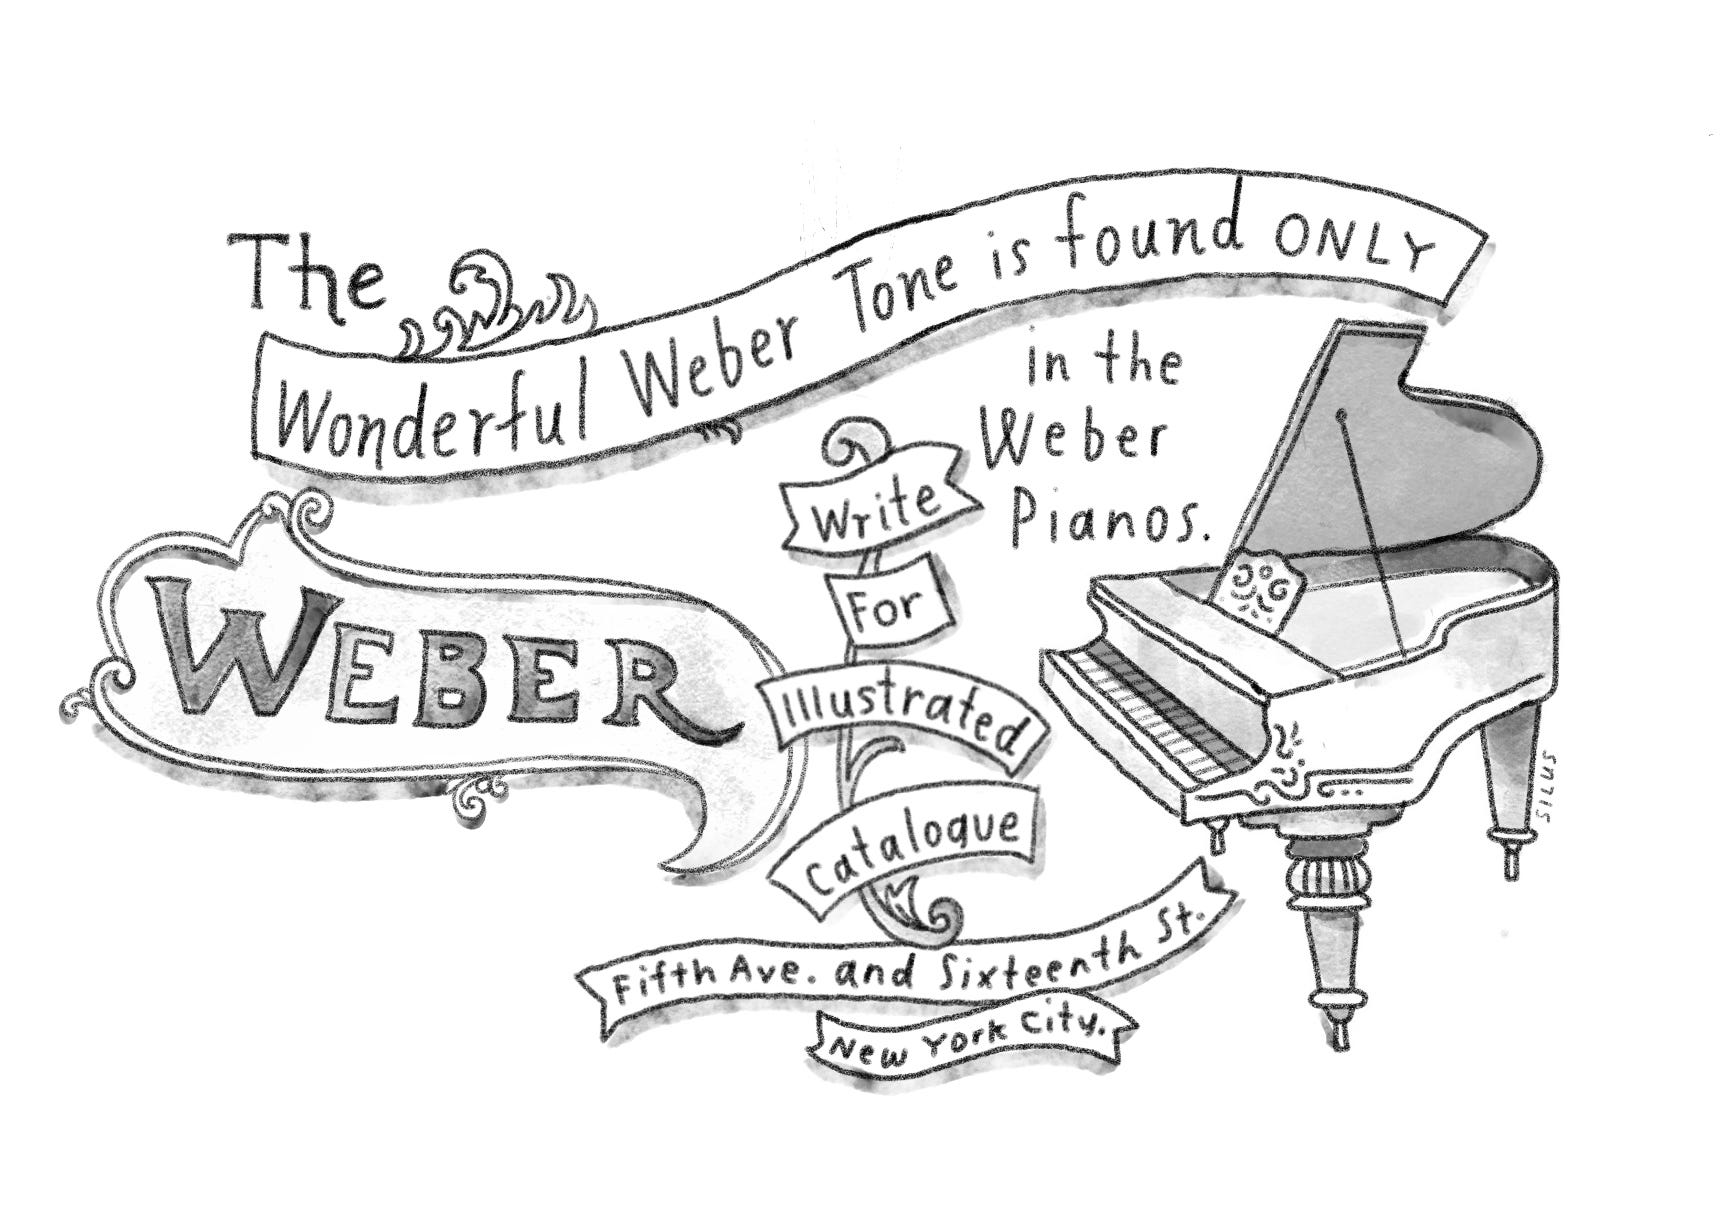 The
Wonderful Weber Tone is found ONLY
in the
Weber
Pianos.
WEBER
Write
For
Illustrated
Catalogue
Fifth Ave. and Sixteenth St.
New York City.
SILUS